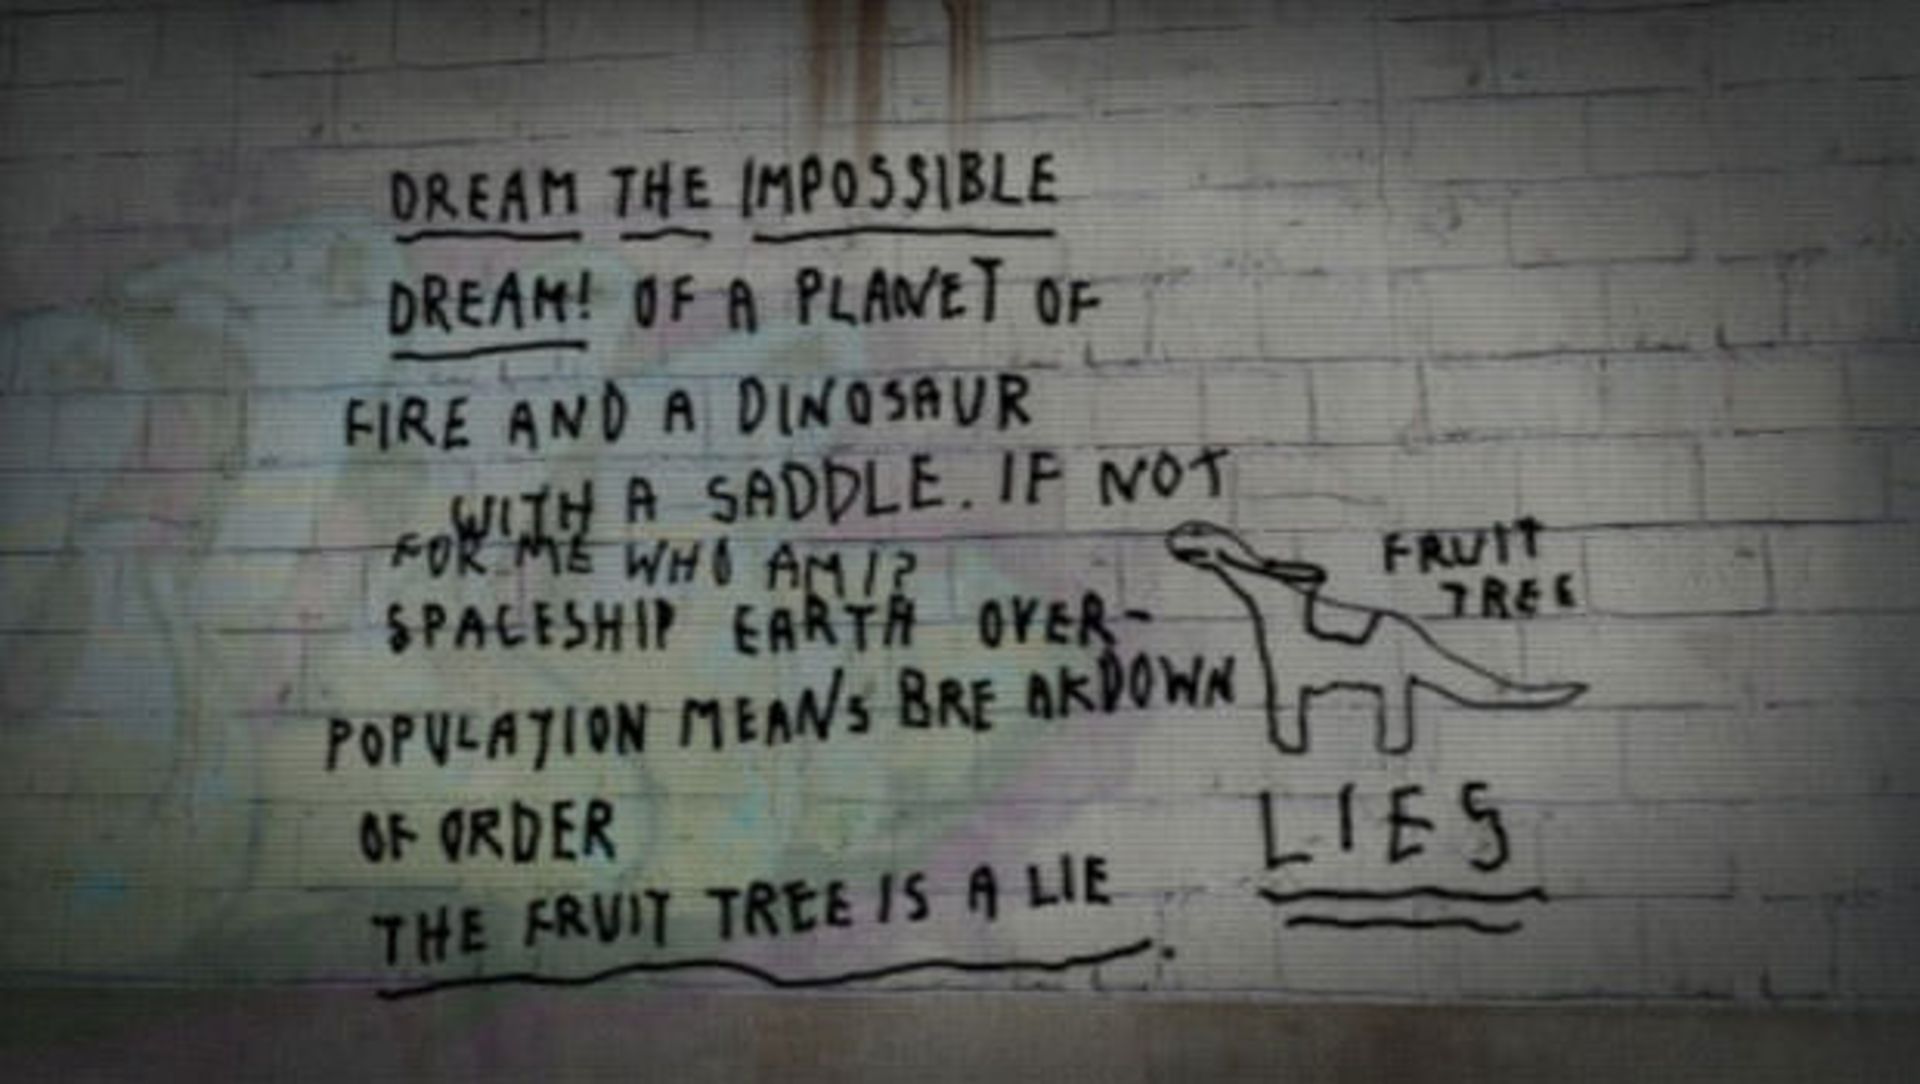 DREAM THE IMPOSSIBLE
DREAM! OF A PLANET OF
FIRE AND A DINOSAUR
WITH A SADDLE. IF NOT
FOR ME WHO AM I?
SPACESHIP EARTH OVER-
POPULATION MEANS BREAKDOWN
OF ORDER
THE FRUIT TREE IS A LIE.
FRUIT
TREE
LIES